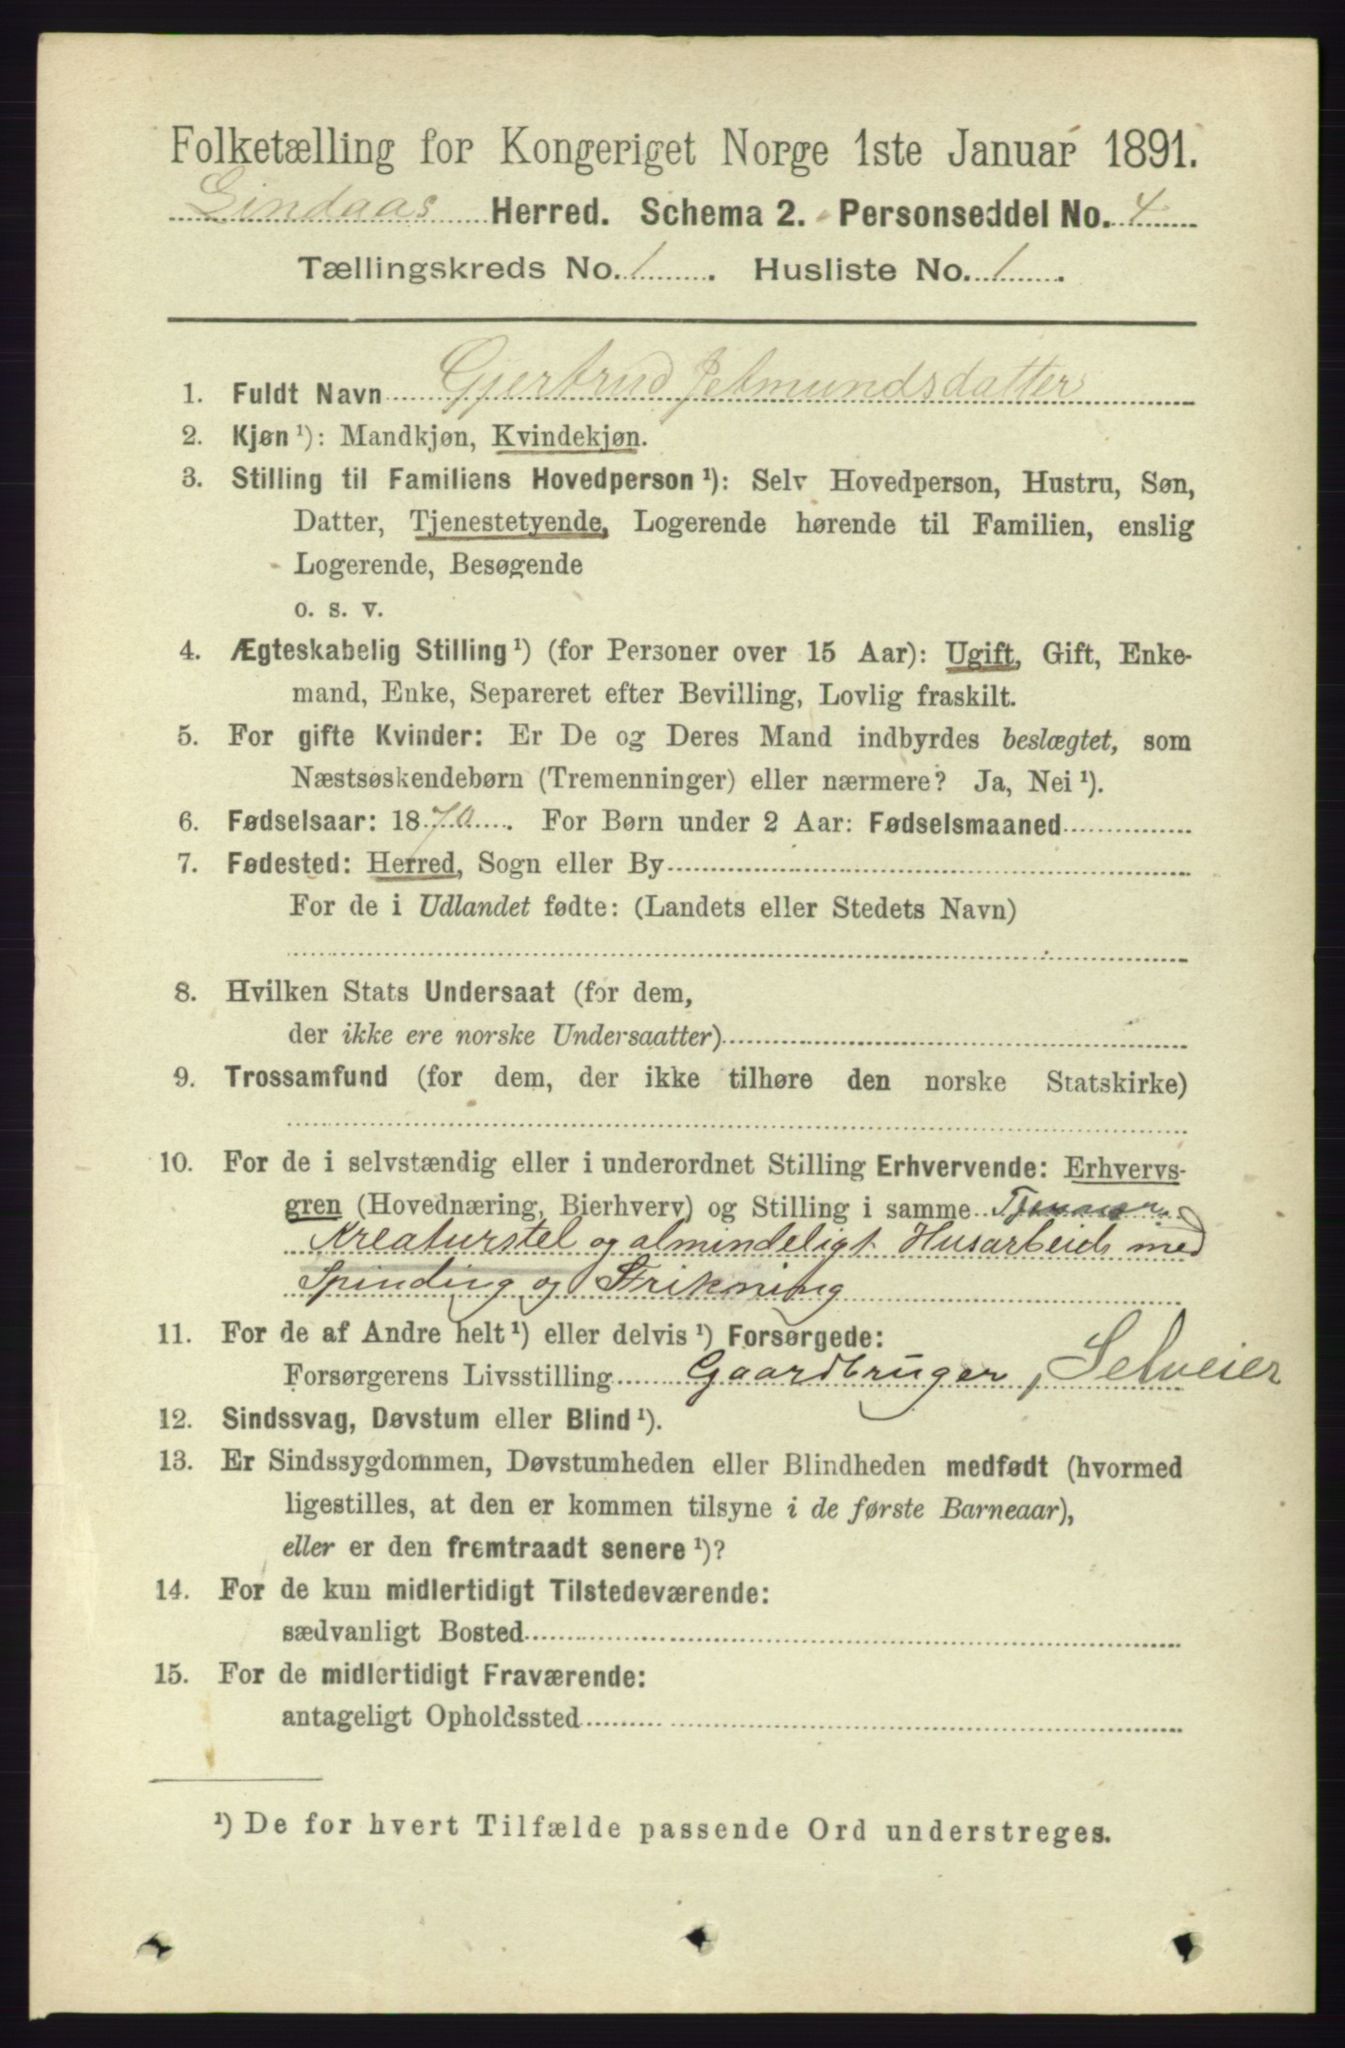 Folketælling for Kongeriget Norge 1ste Januar 1891.
Lindaas Herred. Schema 2. Personseddel No. 4
Tællingskreds No. 1. Husliste No. 1.
1. Fuldt Navn Gjertrud Jetmundsdatter
2. Kjøn ¹): Mandkjøn, Kvindekjøn.
3. Stilling til Familiens Hovedperson ¹): Selv Hovedperson, Hustru, Søn,
Datter, Tjenestetyende, Logerende hørende til Familien, enslig
Logerende, Besøgende
o. s. v.
4. Ægteskabelig Stilling ¹) (for Personer over 15 Aar): Ugift, Gift, Enke-
mand, Enke, Separeret efter Bevilling, Lovlig fraskilt.
5. For gifte Kvinder: Er De og Deres Mand indbyrdes beslægtet, som
Næstsøskendebørn (Tremenninger) eller nærmere? Ja, Nei ¹).
6. Fødselsaar: 1870. For Børn under 2 Aar: Fødselsmaaned
7. Fødested: Herred, Sogn eller By
For de i Udlandet fødte: (Landets eller Stedets Navn)
8. Hvilken Stats Undersaat (for dem,
der ikke ere norske Undersaatter)
9. Trossamfund (for dem, der ikke tilhøre den norske Statskirke)
10. For de i selvstændig eller i underordnet Stilling Erhvervende: Erhvervs-
gren (Hovednæring, Bierhverv) og Stilling i samme
Kreaturstel og almindeligt Husarbeide med
Spinding og Strikning
11. For de af Andre helt ¹) eller delvis ¹) Forsørgede:
Forsørgerens Livsstilling Gaardbruger, Selveier
12. Sindssvag, Døvstum eller Blind ¹).
13. Er Sindssygdommen, Døvstumheden eller Blindheden medfødt (hvormed
ligestilles, at den er kommen tilsyne i de første Barneaar),
eller er den fremtraadt senere ¹)?
14. For de kun midlertidigt Tilstedeværende:
sædvanligt Bosted
15. For de midlertidigt Fraværende:
antageligt Opholdssted
¹) De for hvert Tilfælde passende Ord understreges.